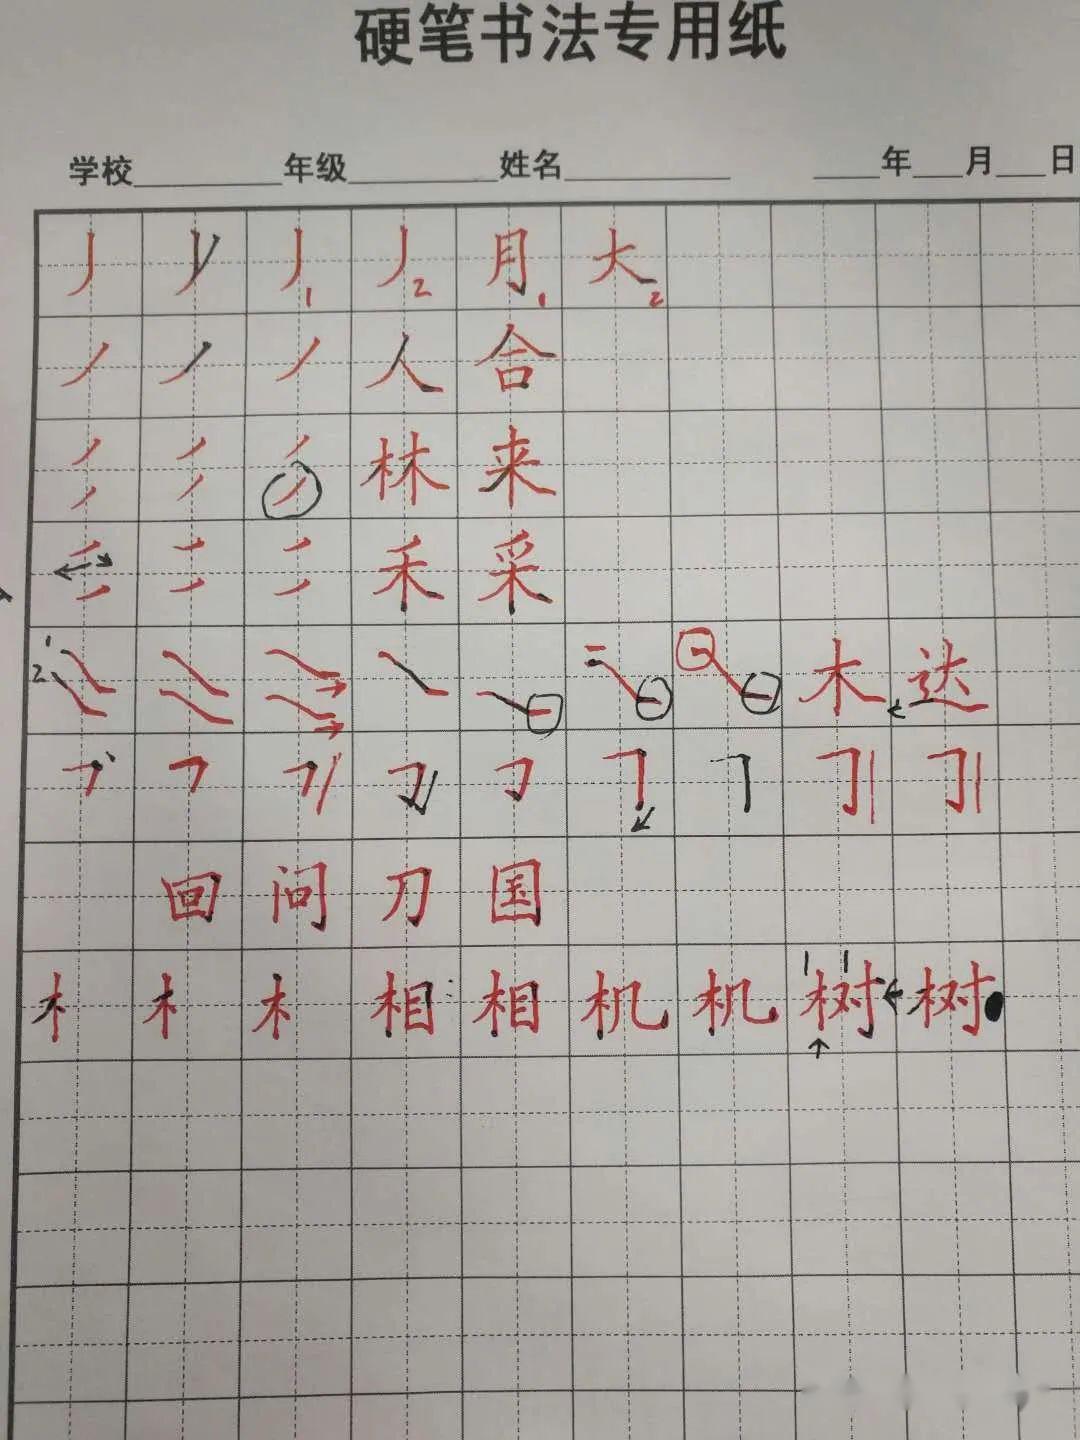 硬笔书法专用纸
学校 年级 姓名 年 月 日
丿 丿 丿1 丿2 月1 大2
丿 丿 丿 人 合
林 来
禾 采
1 2 木 达
回 问 刀 国
木 木 木 相 相 机 机 树 树